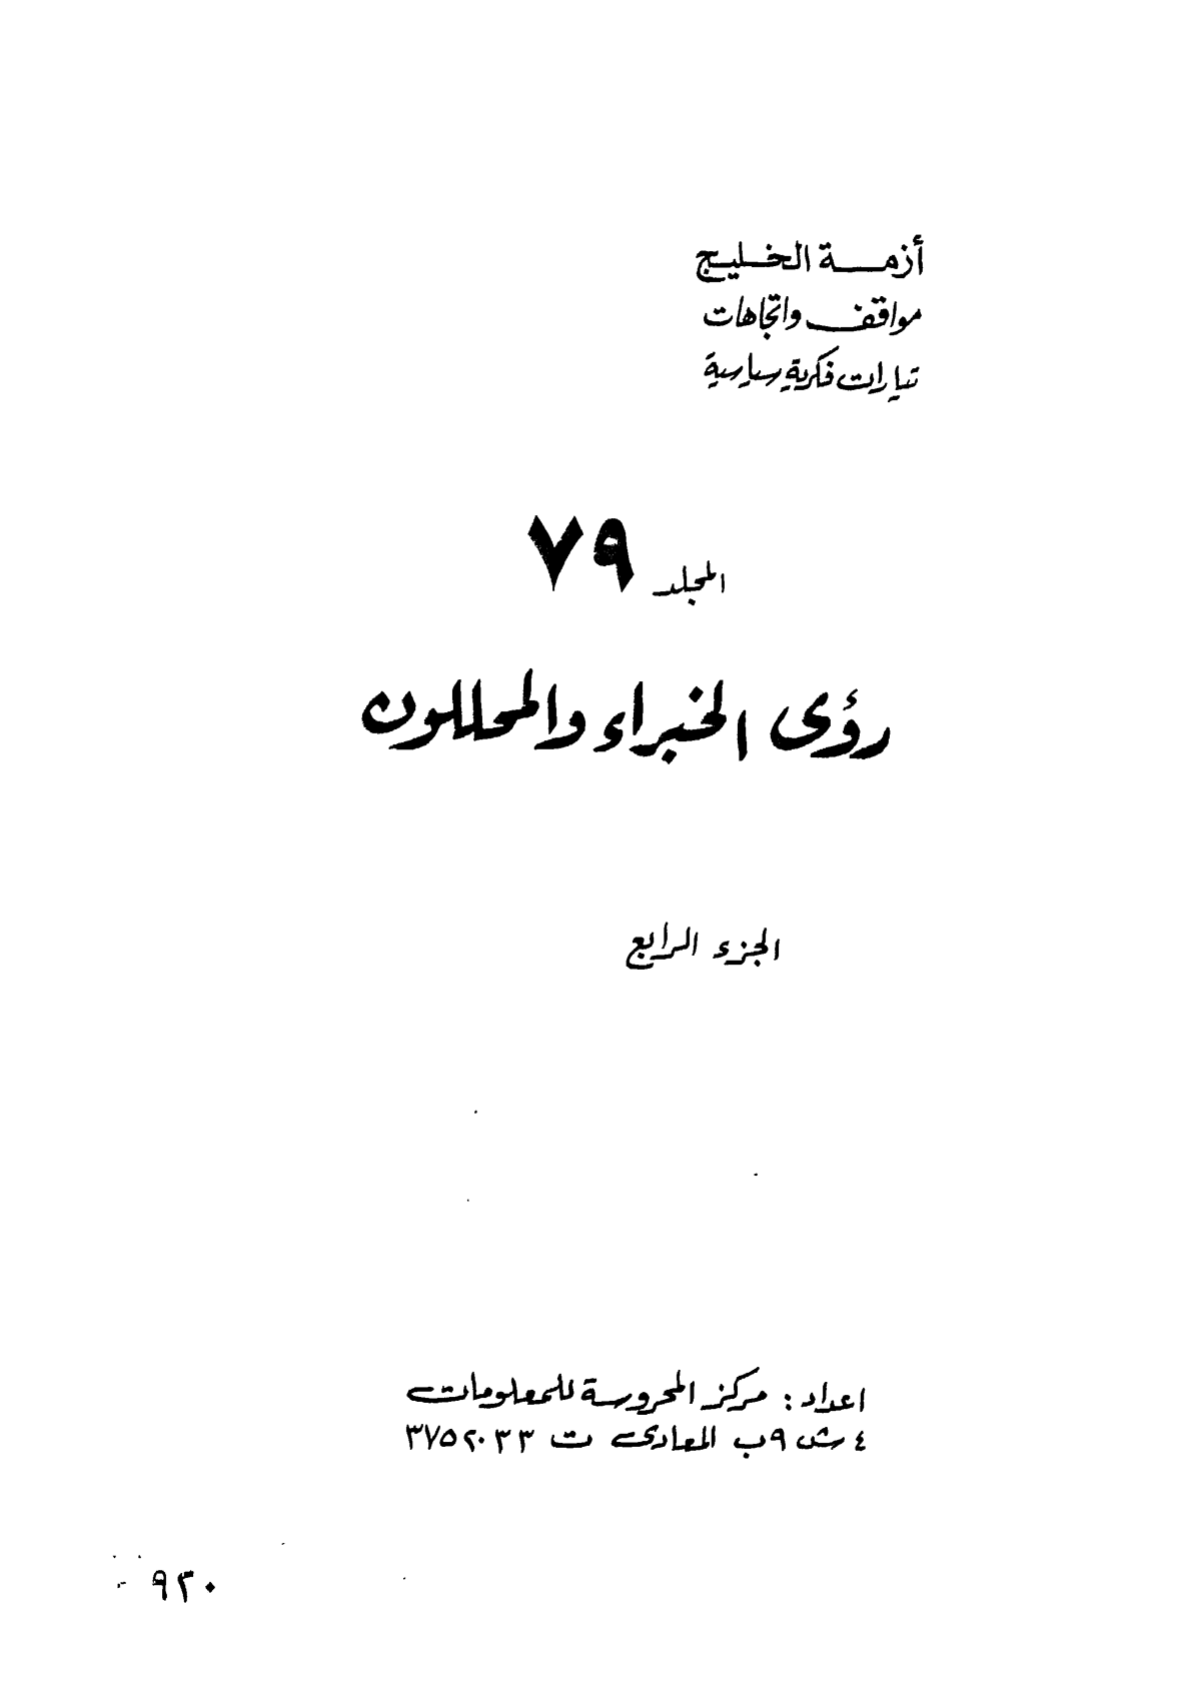 أزمة الخليج
مواقف واتجاهات
تيارات فكرية سياسية
المجلد ٧٩
رؤى الخبراء والمحللون
الجزء الرابع
اعداد : مركز المحروسة للمعلومات
٤ ش ٩ ب المعادى ت ٣٧٥٢٠٣٣
٩٢٠